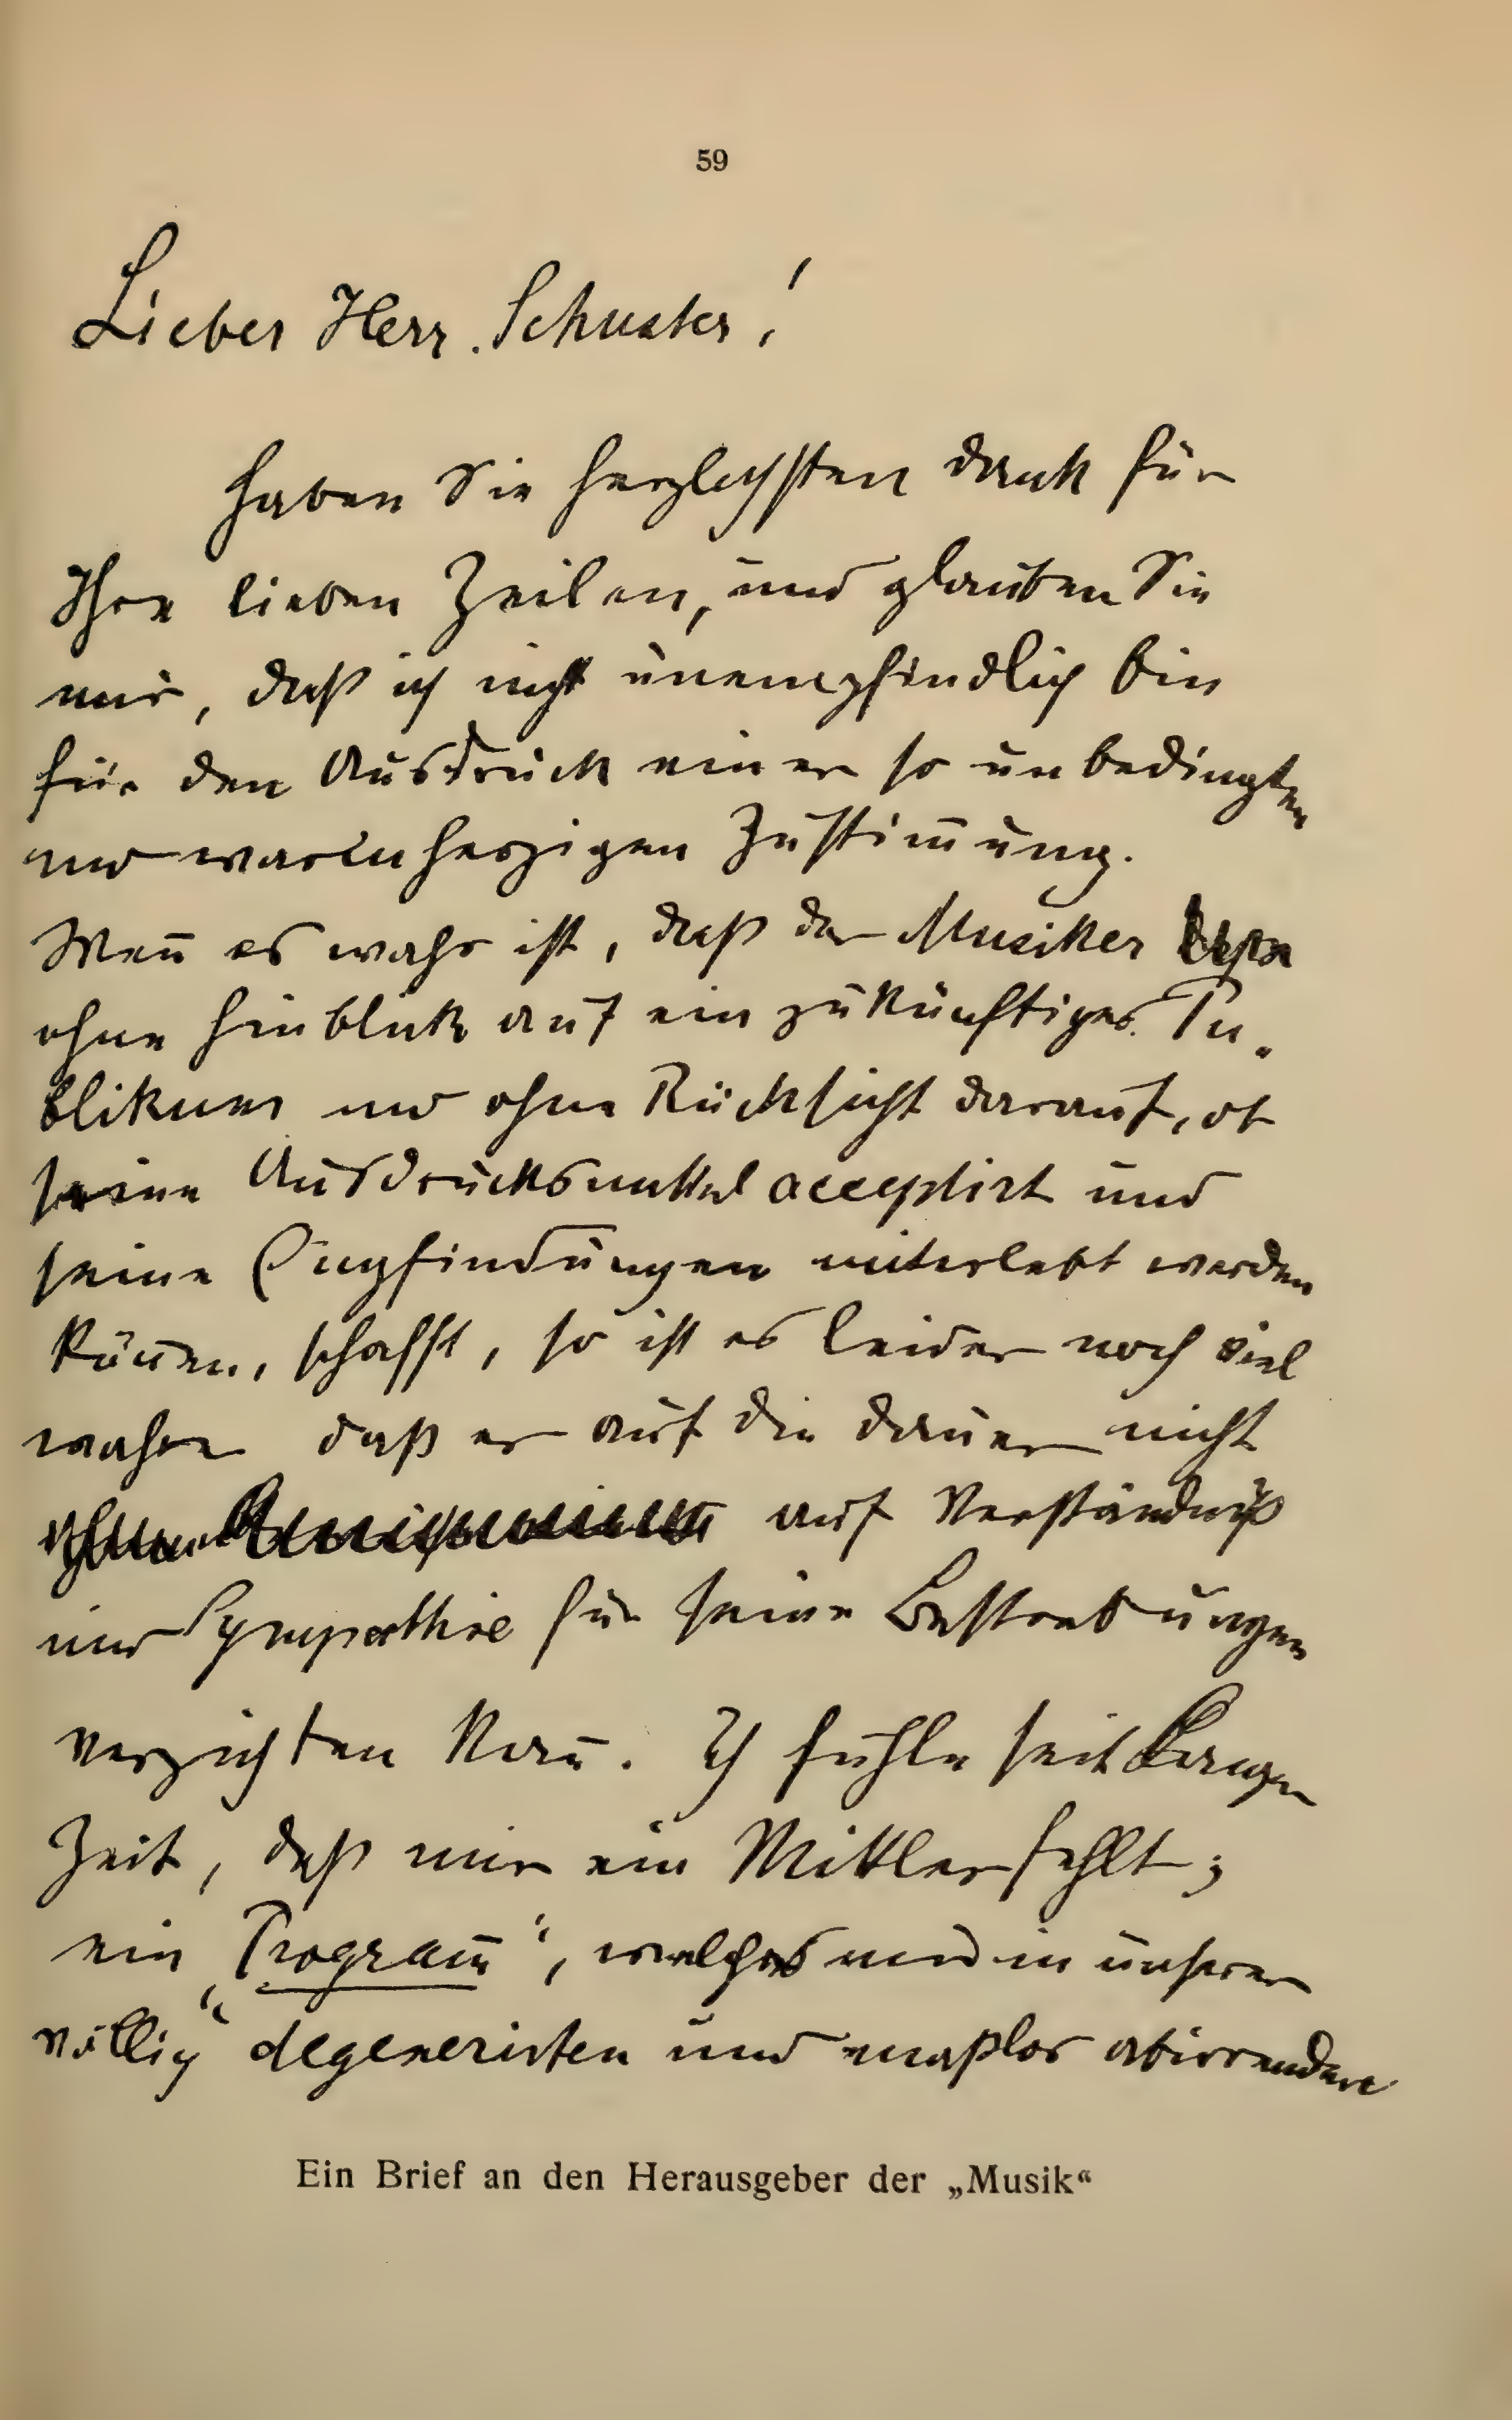 59
Lieber Herr Schuster!
haben Sie herzlichsten Dank für
Ihre lieben Zeilen, und glauben Sie
mir, daß ich nicht unempfindlich bin
für den Ausdruck einer so unbedingten
und warmherzigen Zustim̄ung.
Wen̄ es wahr ist, daß der Musiker
ohne Hinblick auf ein zukünftiges Pu-
blikum und ohne Rücksicht darauf, ob
seine Ausdrucksmittel acceptirt und
seine Empfindungen miterlebt werden
kön̄en, schafft, so ist es leider noch viel
wahrer daß er auf die Dauer nicht
auf Verständniß
und Sympathie für seine Bestrebungen
verzichten kan̄. Ich fühle seit langer
Zeit, daß mir ein Mittler fehlt;
ein „Program̄“, welches und in unserer
völlig degenerirten und maßlos abirrenden
Ein Brief an den Herausgeber der „Musik“